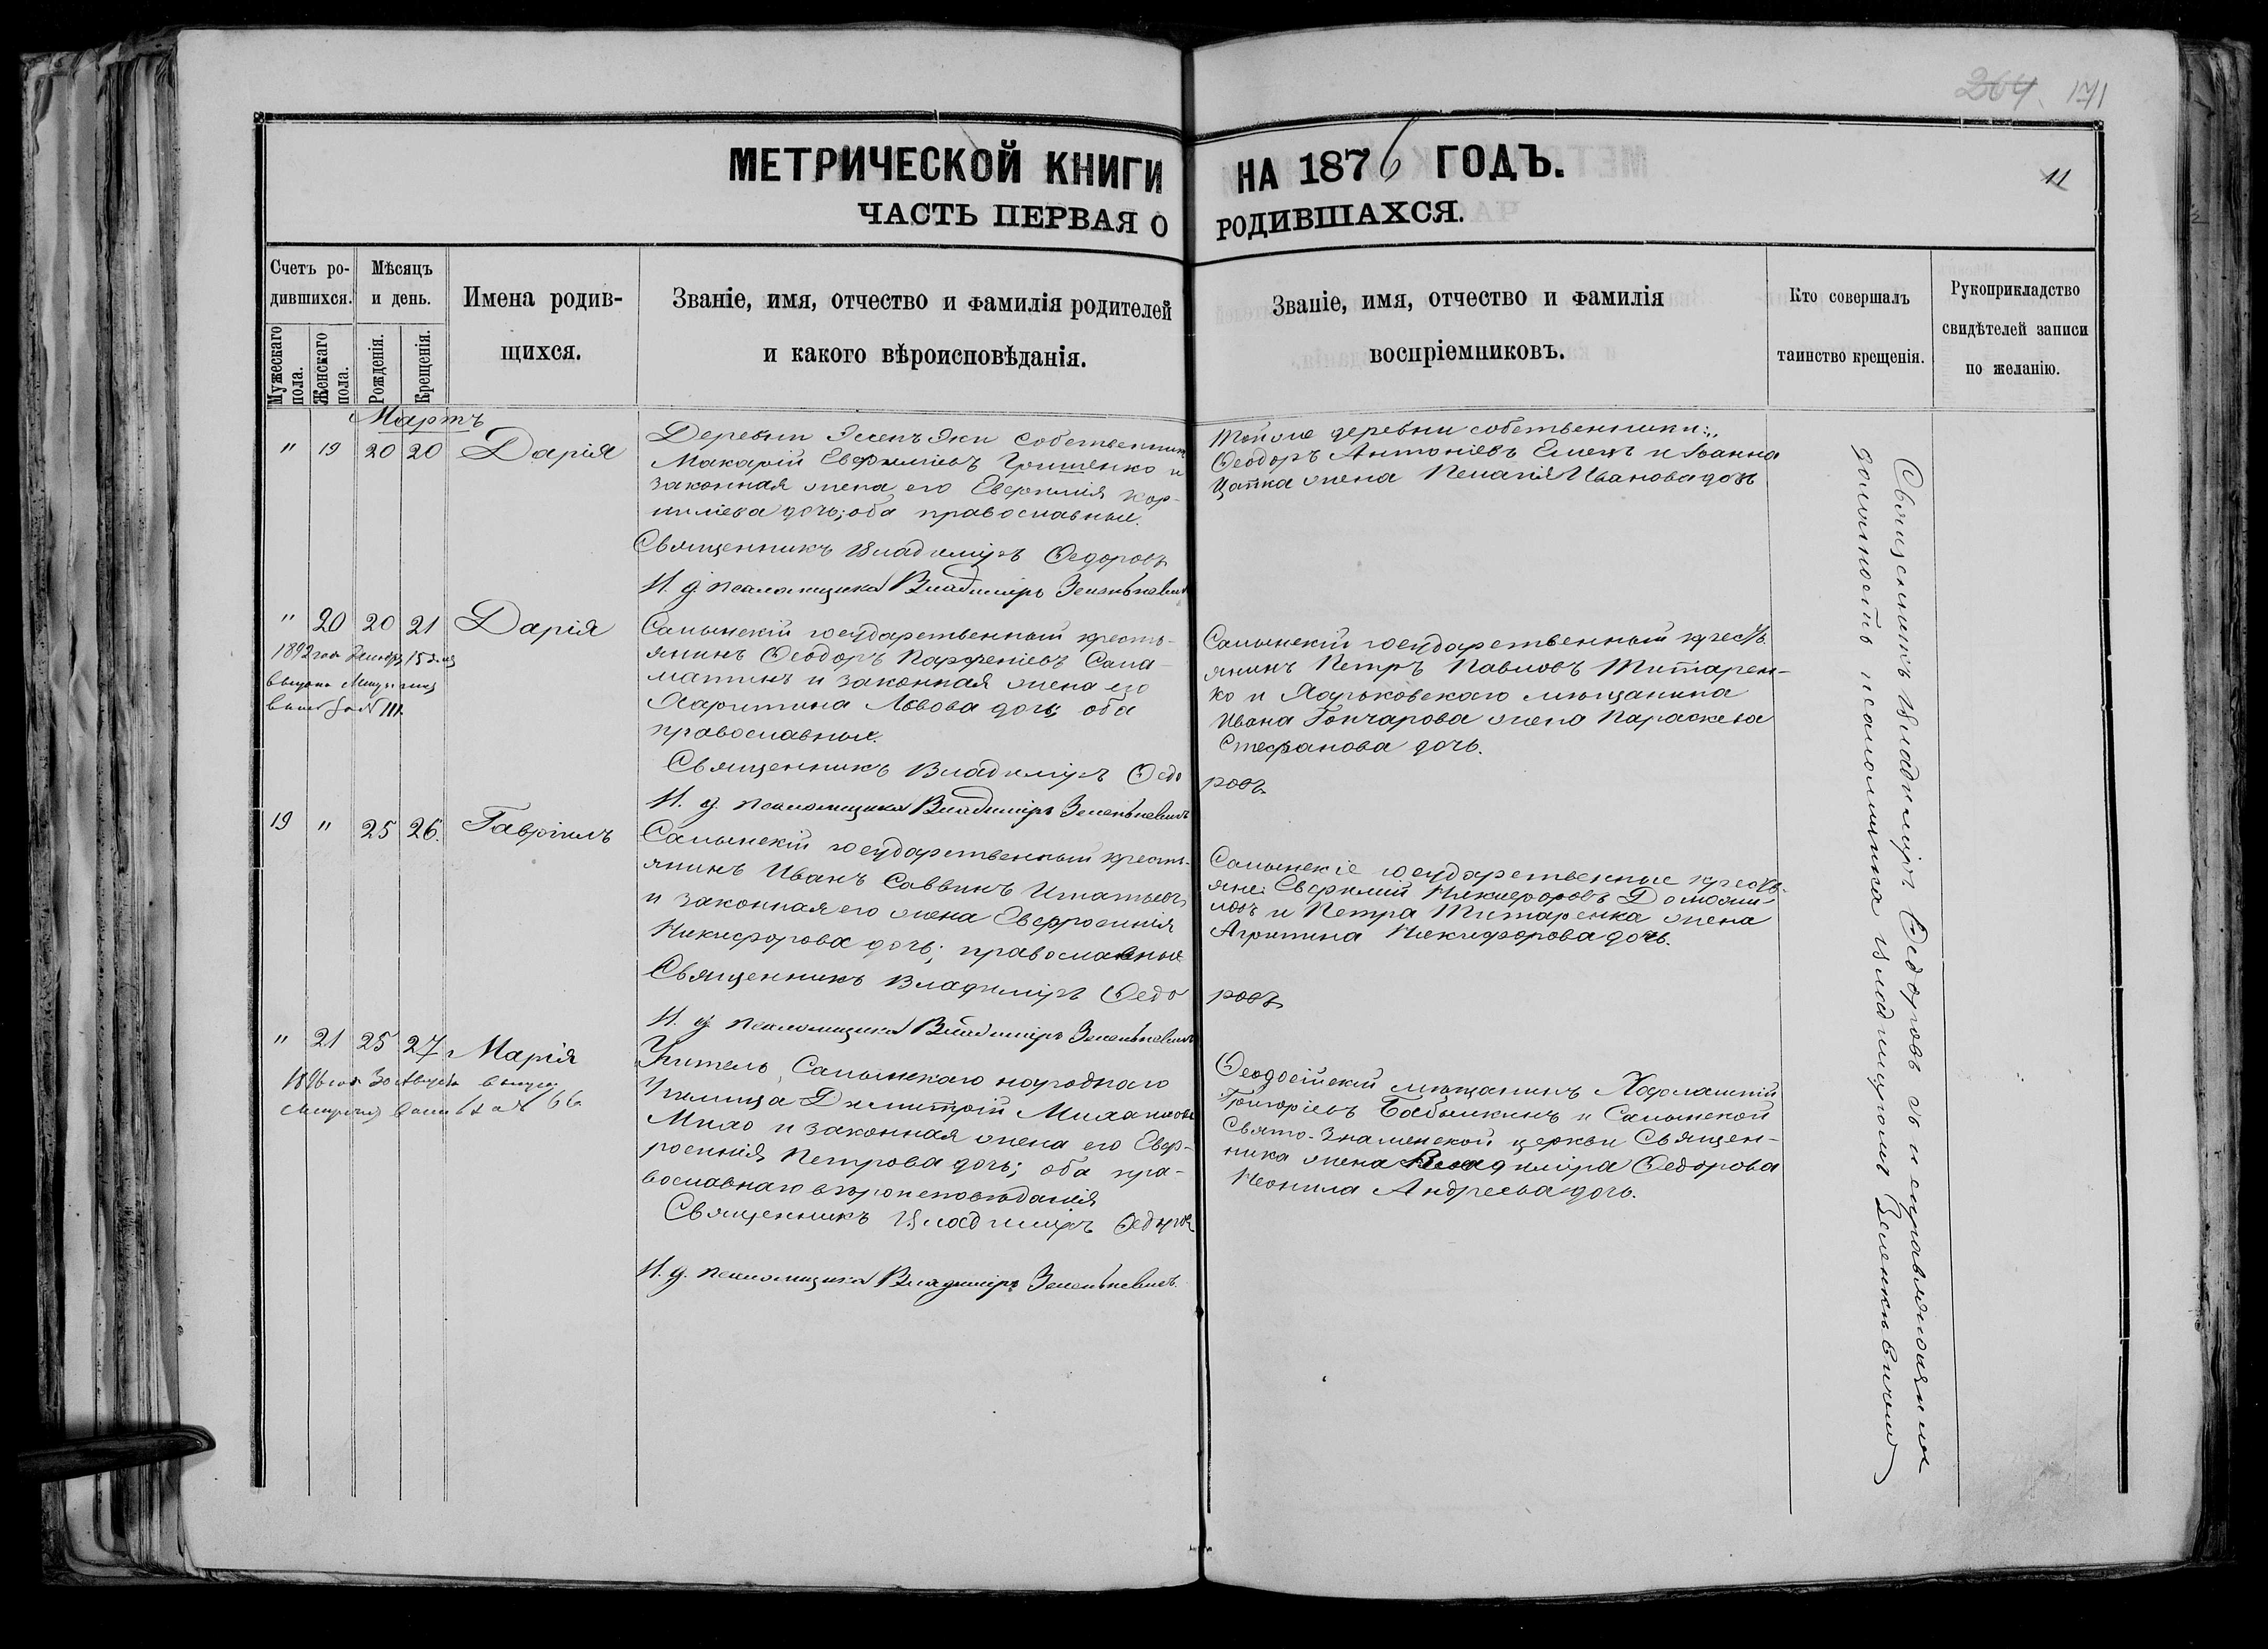 264. 171
МЕТРИЧЕСКОЙ КНИГИ НА 1876 ГОДЪ.
11
ЧАСТЬ ПЕРВАЯ О РОДИВШАХСЯ.
Счетъ ро-
дившихся.
Мужескаго пола.
Женскаго пола.
Мѣсяцъ
и день.
Рожденія.
Крещенія.
Имена родив-
шихся.
Званіе, имя, отчество и фамилія родителей
и какого вѣроисповѣданія.
Званіе, имя, отчество и фамилія
воспріемниковъ.
Кто совершалъ
таинство крещенія.
Рукоприкладство
свидѣтелей записи
по желанію.
Мартъ
" 19 20 20 Дарія
Деревни Эки собственник
Макарій Евфиміевъ Гришенко и
законная жена его Евфимія Кор-
ниліева дочь; оба православные.
Священникъ Владиміръ Ѳедоровъ
И. д. псаломщика Владиміръ Зеленкевичъ
Той же деревни собственники:
Ѳеодоръ Антоніевъ Емецъ и Іоанна
Цапка жена Пелагія Иванова дочь
" 20 20 21 Дарія
1892 года 15 дня
выдана
Салынскій государственный кресть-
янинъ Ѳеодоръ Парфеніевъ Сала-
матинъ и законная жена его
Харитина Львова дочь; оба
православные.
Священникъ Владиміръ Ѳедо
ровъ
И. д. псаломщика Владиміръ Зеленкевичъ
Салынскій государственный кресть-
янинъ Петръ Павловъ Титарен-
ко и Харьковскаго мѣщанина
Ивана Гончарова жена Параскева
Стефанова дочь.
19 " 25 26. Гавріилъ
Салынскій государственный кресть-
янинъ Иванъ Саввинъ Игнатьевъ
и законная его жена Евфросинія
Никифорова дочь; православные
Священникъ Владиміръ Ѳедо
ровъ
И. д. псаломщика Владиміръ Зеленкевичъ
Салынскіе государственные кресть-
яне: Евфимій Никифоровъ
и Петра Титаренка жена
Агрипина Никифорова дочь.
" 21 25 27 Марія
1896 года 30 Августа выдан
66
Учитель Салынскаго народнаго
Училища Димитрій Михаиловъ
Михо и законная жена его Евф-
росинія Петрова дочь; оба пра-
вославнаго вѣроисповѣданія
Священникъ Владиміръ Ѳедоровъ
И. д. псаломщика Владиміръ Зеленкевичъ.
Ѳеодосійскій мѣщанинъ Харлампій
Григоріевъ Бабылкинъ и Салынской
Свято-Знаменской церкви Священ-
ника жена Владиміра Ѳедорова
Неонила Андреева дочь.
Священникъ Владиміръ Ѳедоровъ съ исправляющимъ
должность псаломщика Владиміромъ Зеленкевичемъ